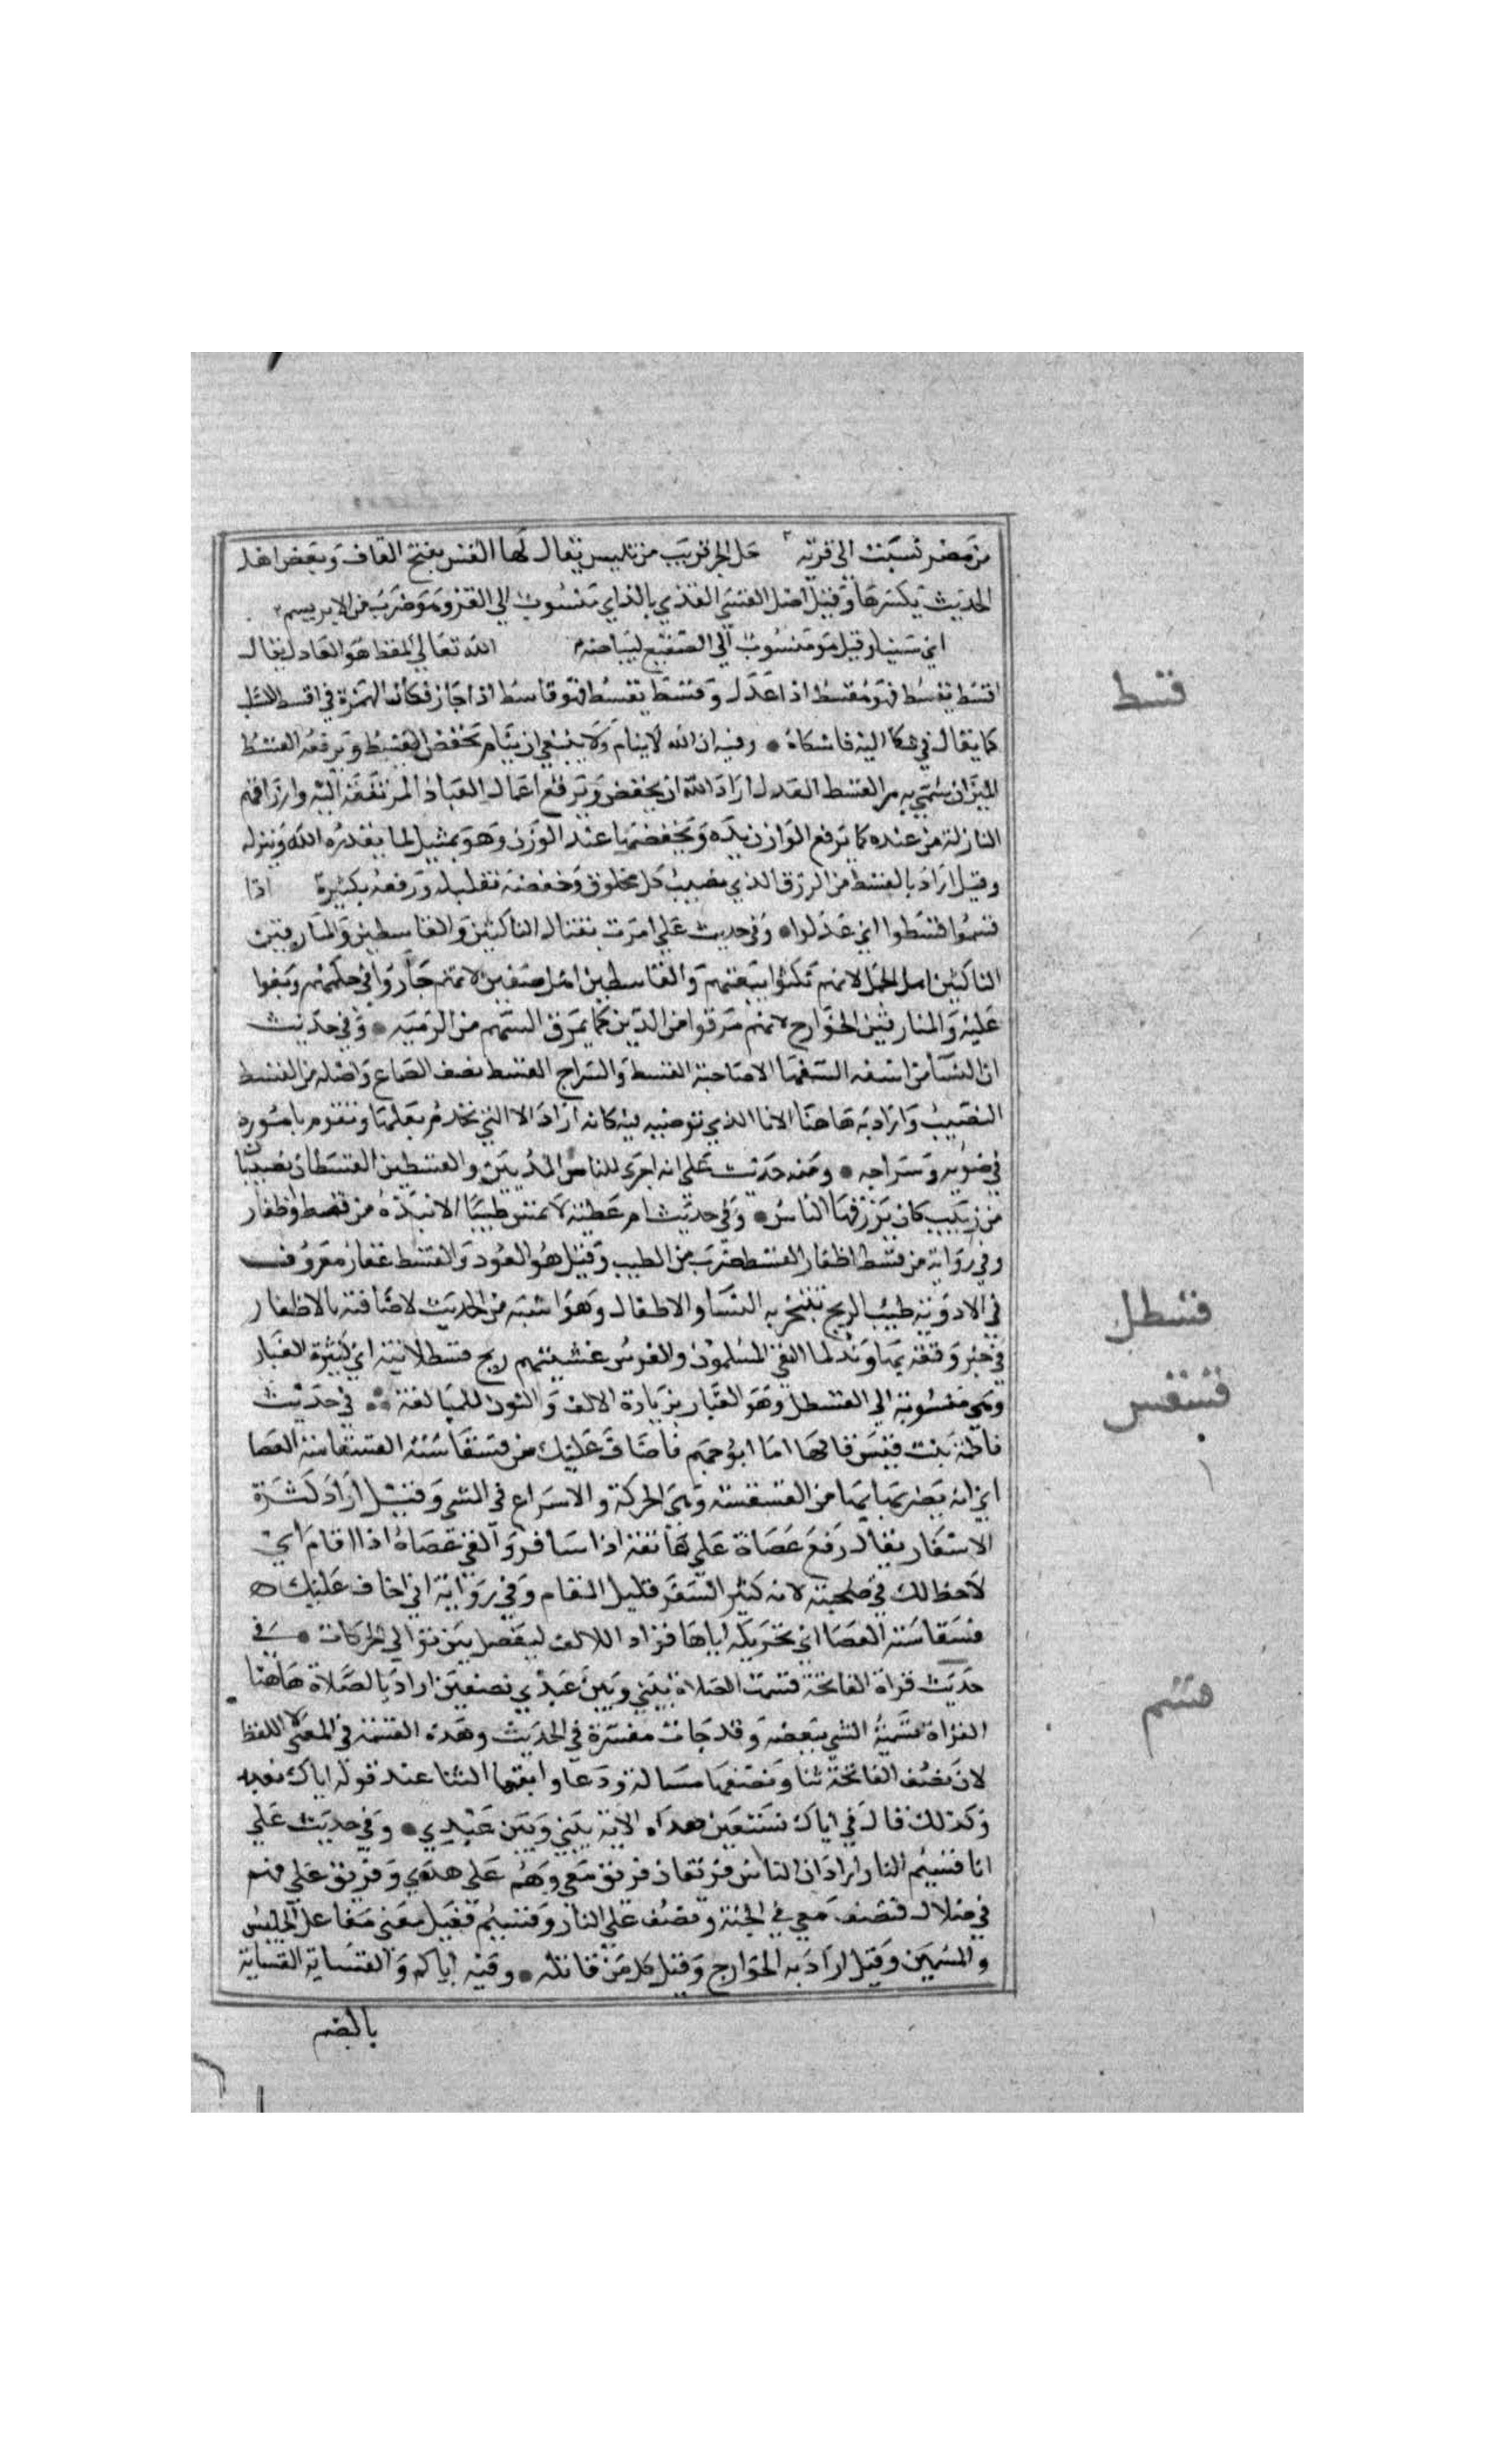 من مصر نسبت الي قرية حل البحر قريب من تنيس يقال لها القس بفتح القاف وبعض اهل
الحديث يكسرها وقيل اصل القسي القزي بالزاي منسوب الي القز وهو ضرب من الابريسم
اي سينا وقيل هو منسوب الي الصقيع لبياضه الله تعالي المقسط هو العادل يقال
قسط
اقسط يقسط فهو مقسط اذا عدل وقسط يقسط فهو قاسط اذا جار فكان الهمزة في اقسط للسلب
كما يقال في شكا اليه فاشكاه وفيه ان الله لا ينام ولا ينبغي ان ينام يخفض القسط ويرفعه القسط
الميزان سمي به من القسط العدل اراد الله ان يخفض ويرفع اعمال العباد المرتفعة اليه وارزاقهم
النازلة من عنده كما يرفع الوازن يده ويخفضها عند الوزن وهو تمثيل لما يقدره الله وينزله
وقيل اراد بالقسط من الرزق الذي يصيب كل مخلوق وخفضه تقليله ورفعه تكثيره اذا
قسموا اقسطوا اي عدلوا وفي حديث علي امرت بقتال الناكثين والقاسطين والمارقين
الناكثين اهل الجمل لانهم نكثوا بيعتهم والقاسطين اهل صفين لانهم جاروا في حكمهم وبغوا
عليه والمارقين الخوارج لانهم مرقوا من الدين كما يمرق السهم من الرمية وفي حديث
ان النسا من اسفه السفها الا صاحبة القسط والسراج القسط نصف الصاع واصله من القسط
النصيب واراد به هاهنا الانا الذي توضيه فيه كانه اراد الا التي تخدم بعلها وتقوم باموره
في ضوئه وسراجه ومنه حديث علي انه اجري للناس المديين والقسطين القسطان نصيبان
من زيت كان يرزقهما الناس وفي حديث ام عطية لا تمس طيبا الا نبذة من قسط واظفار
وفي رواية من قسط اظفار القسط ضرب من الطيب وقيل هو العود والقسط عقار معروف
في الادوية طيب الريح تتبخر به النسا والاطفال وهو اشبه من الحديث لاضافته بالاظفار
قسطل
في خبر وقعة نهاوند لما التقي المسلمون والفرس غشيتهم ريح قسطلانية اي كثيرة الغبار
وهي منسوبة الي القسطل وهو الغبار بزيادة الالف والنون للمبالغة في حديث
قسقس
فاطمة بنت قيس قال لها اما ابو جهم فاخاف عليك من قسقاسته القسقاسة العصا
اي انه يضربها بها من القسقسة وهي الحركة والاسراع في المشي وقيل اراد كثرة
الاسفار يقال رفع عصاه علي عاتقه اذا سافر والقي عصاه اذا اقام اي
لاحظ لك في صحبته لانه كثير السفر قليل المقام وفي رواية اني اخاف عليك
قسقاسته العصا اي تحريكه اياها فزاد الالف ليفصل بين توالي الحركات في
قسم
حديث قراة الفاتحة قسمت الصلاة بيني وبين عبدي نصفين اراد بالصلاة هاهنا
القراة تسمية الشي ببعضه وقد جات مفسرة في الحديث وهذه القسمة في المعني لا اللفظ
لان نصف الفاتحة ثنا ونصفها مسالة ودعا وانتها الثنا عند قوله اياك نعبد
وكذلك قال في اياك نستعين هذه الاية بيني وبين عبدي وفي حديث علي
انا قسيم النار اراد ان الناس فريقان فريق معي وهم علي هدي وفريق علي فهم
في ضلال فنصف معي في الجنة ونصف علي النار وقسيم فعيل بمعني مفاعل كالجليس
والسمير وقيل اراد به الخوارج وقيل كل من قاتله وفيه اياكم والقسامة القسامة
بالضم